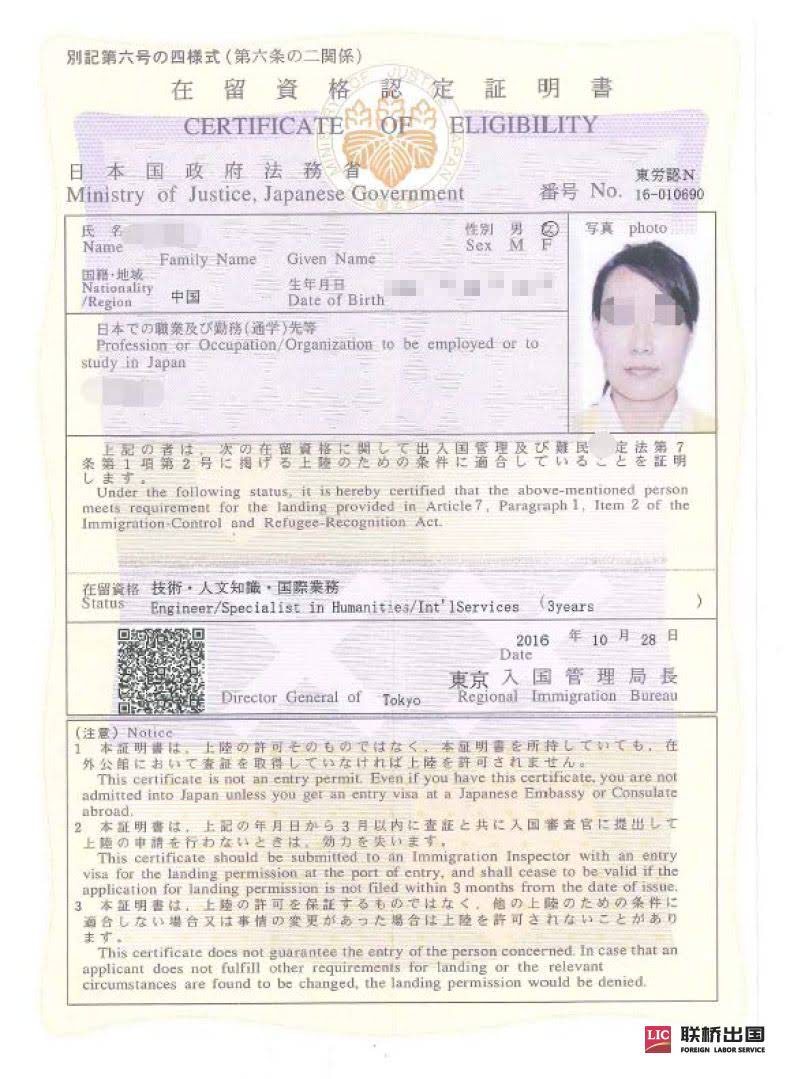 別記第六号の四様式(第六条の二関係)
在留資格認定証明書
CERTIFICATE OF ELIGIBILITY
日本国政府法務省
Ministry of Justice, Japanese Government
東労認N
番号 No. 16-010690
氏 名
Name
Family Name Given Name
性別 男 女
Sex M F
写真 photo
国籍・地域
Nationality
/Region
中国
生年月日
Date of Birth
日本での職業及び勤務(通学)先等
Profession or Occupation/Organization to be employed or to
study in Japan
上記の者は、次の在留資格に関して出入国管理及び難民 定法第7
条第1項第2号に掲げる上陸のための条件に適合していることを証明
します。
Under the following status, it is hereby certified that the above-mentioned person
meets requirement for the landing provided in Article 7, Paragraph 1, Item 2 of the
Immigration-Control and Refugee-Recognition Act.
在留資格 技術・人文知識・国際業務
Status Engineer/Specialist in Humanities/Int'lServices (3years )
2016 年 10 月 28 日
Date
東京 入国管理局長
Director General of Tokyo Regional Immigration Bureau
(注意) Notice
1 本証明書は、上陸の許可そのものではなく、本証明書を所持していても、在
外公館において査証を取得していなければ上陸を許可されません。
This certificate is not an entry permit. Even if you have this certificate, you are not
admitted into Japan unless you get an entry visa at a Japanese Embassy or Consulate
abroad.
2 本証明書は、上記の年月日から3月以内に査証と共に入国審査官に提出して
上陸の申請を行わないときは、効力を失います。
This certificate should be submitted to an Immigration Inspector with an entry
visa for the landing permission at the port of entry, and shall cease to be valid if the
application for landing permission is not filed within 3 months from the date of issue.
3 本証明書は、上陸の許可を保証するものではなく、他の上陸のための条件に
適合しない場合又は事情の変更があった場合は上陸を許可されないことがあり
ます。
This certificate does not guarantee the entry of the person concerned. In case that an
applicant does not fulfill other requirements for landing or the relevant
circumstances are found to be changed, the landing permission would be denied.
LIC 联桥出国
FOREIGN LABOR SERVICE